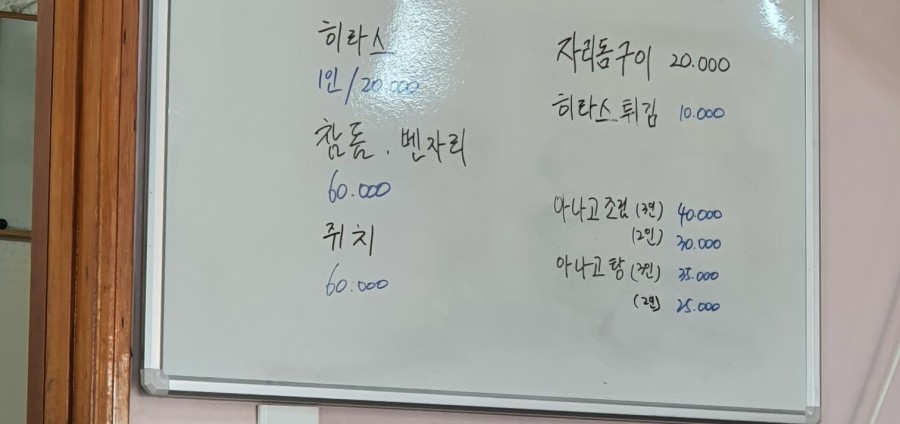 히라스
1인/20.000
참돔. 벤자리
60.000
쥐치
60.000
자리돔구이 20.000
히라스튀김 10.000
아나고조림 (3인) 40.000
(2인) 30.000
아나고탕 (3인) 35.000
(2인) 25.000